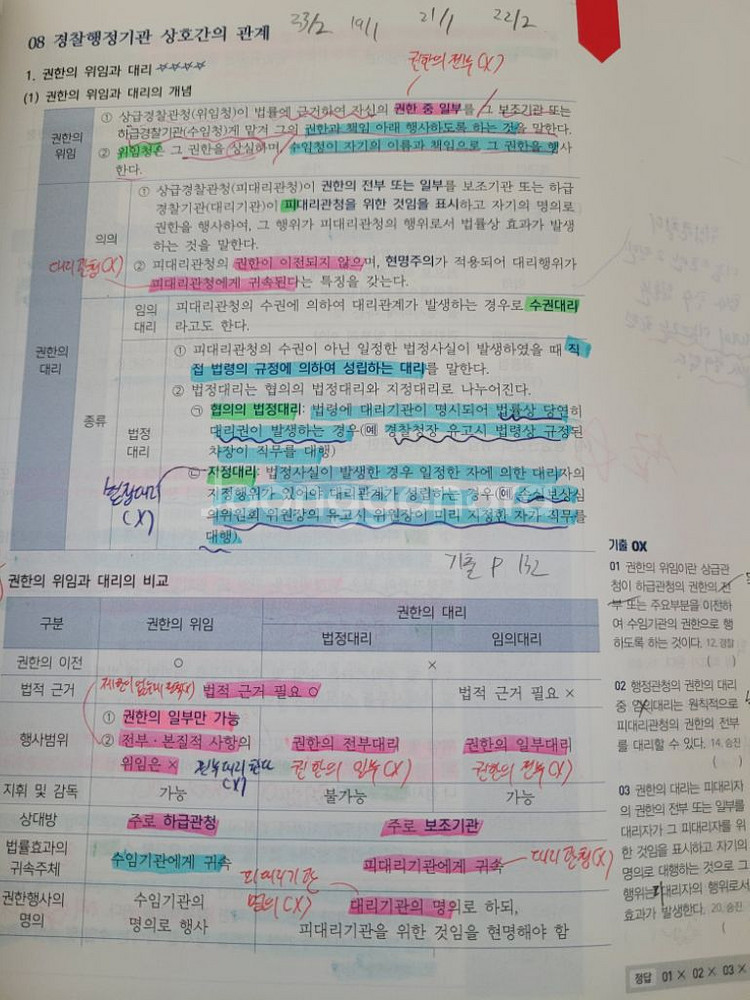 33/2 19/1 21/1 22/2
08 경찰행정기관 상호간의 관계
권한의 전부 (X)
1. 권한의 위임과 대리 ☆☆☆☆
(1) 권한의 위임과 대리의 개념
권한의 위임
① 상급경찰관청(위임청)이 법률에 근거하여 자신의 권한 중 일부를 그 보조기관 또는
하급경찰기관(수임청)에게 맡겨 그의 권한과 책임 아래 행사하도록 하는 것을 말한다.
② 위임청은 그 권한을 상실하며, 수임청이 자기의 이름과 책임으로 그 권한을 행사
한다.
권한의 대리
의의
① 상급경찰관청(피대리관청)이 권한의 전부 또는 일부를 보조기관 또는 하급
경찰기관(대리기관)이 피대리관청을 위한 것임을 표시하고 자기의 명의로
권한을 행사하여, 그 행위가 피대리관청의 행위로서 법률상 효과가 발생
하는 것을 말한다.
② 피대리관청의 권한이 이전되지 않으며, 현명주의가 적용되어 대리행위가
대리관청(X)
피대리관청에게 귀속된다는 특징을 갖는다.
종류
임의대리
피대리관청의 수권에 의하여 대리관계가 발생하는 경우로 수권대리
라고도 한다.
법정대리
① 피대리관청의 수권이 아닌 일정한 법정사실이 발생하였을 때 직
접 법령의 규정에 의하여 성립하는 대리를 말한다.
② 법정대리는 협의의 법정대리와 지정대리로 나누어진다.
㉠ 협의의 법정대리: 법령에 대리기관이 명시되어 법률상 당연히
대리권이 발생하는 경우(예 경찰청장 유고시 법령상 규정된
차장이 직무를 대행)
㉡ 지정대리: 법정사실이 발생한 경우 일정한 자에 의한 대리자의
지정행위가 있어야 대리관계가 성립하는 경우(예 손실보상심
의위원회 위원장의 유고시 위원장이 미리 지정한 자가 직무를
대행)
(X)
기출 P 132
권한의 위임과 대리의 비교
구분 권한의 위임 권한의 대리
법정대리 임의대리
권한의 이전 ○ ×
법적 근거 법적 근거 필요 ○ 법적 근거 필요 ×
행사범위
① 권한의 일부만 가능
② 전부·본질적 사항의
위임은 ×
(X)
권한의 전부대리
권한의 일부(X)
권한의 일부대리
권한의 전부(X)
지휘 및 감독 가능 불가능 가능
상대방 주로 하급관청 주로 보조기관
법률효과의 귀속주체 수임기관에게 귀속 피대리기관에게 귀속 대리관청(X)
피대리기관
명의(X)
권한행사의 명의
수임기관의
명의로 행사
대리기관의 명의로 하되,
피대리기관을 위한 것임을 현명해야 함
기출 OX
01 권한의 위임이란 상급관
청이 하급관청의 권한의 전
부 또는 주요부분을 이전하
여 수임기관의 권한으로 행
하도록 하는 것이다. 12. 경찰
( )
02 행정관청의 권한의 대리
중 임의대리는 원칙적으로
피대리관청의 권한의 전부
를 대리할 수 있다. 14. 승진
( )
03 권한의 대리는 피대리자
의 권한의 전부 또는 일부를
대리자가 그 피대리자를 위
한 것임을 표시하고 자기의
명의로 대행하는 것으로 그
행위는 대리자의 행위로서
효과가 발생한다. 20. 승진
(
정답 01 × 02 × 03 ×